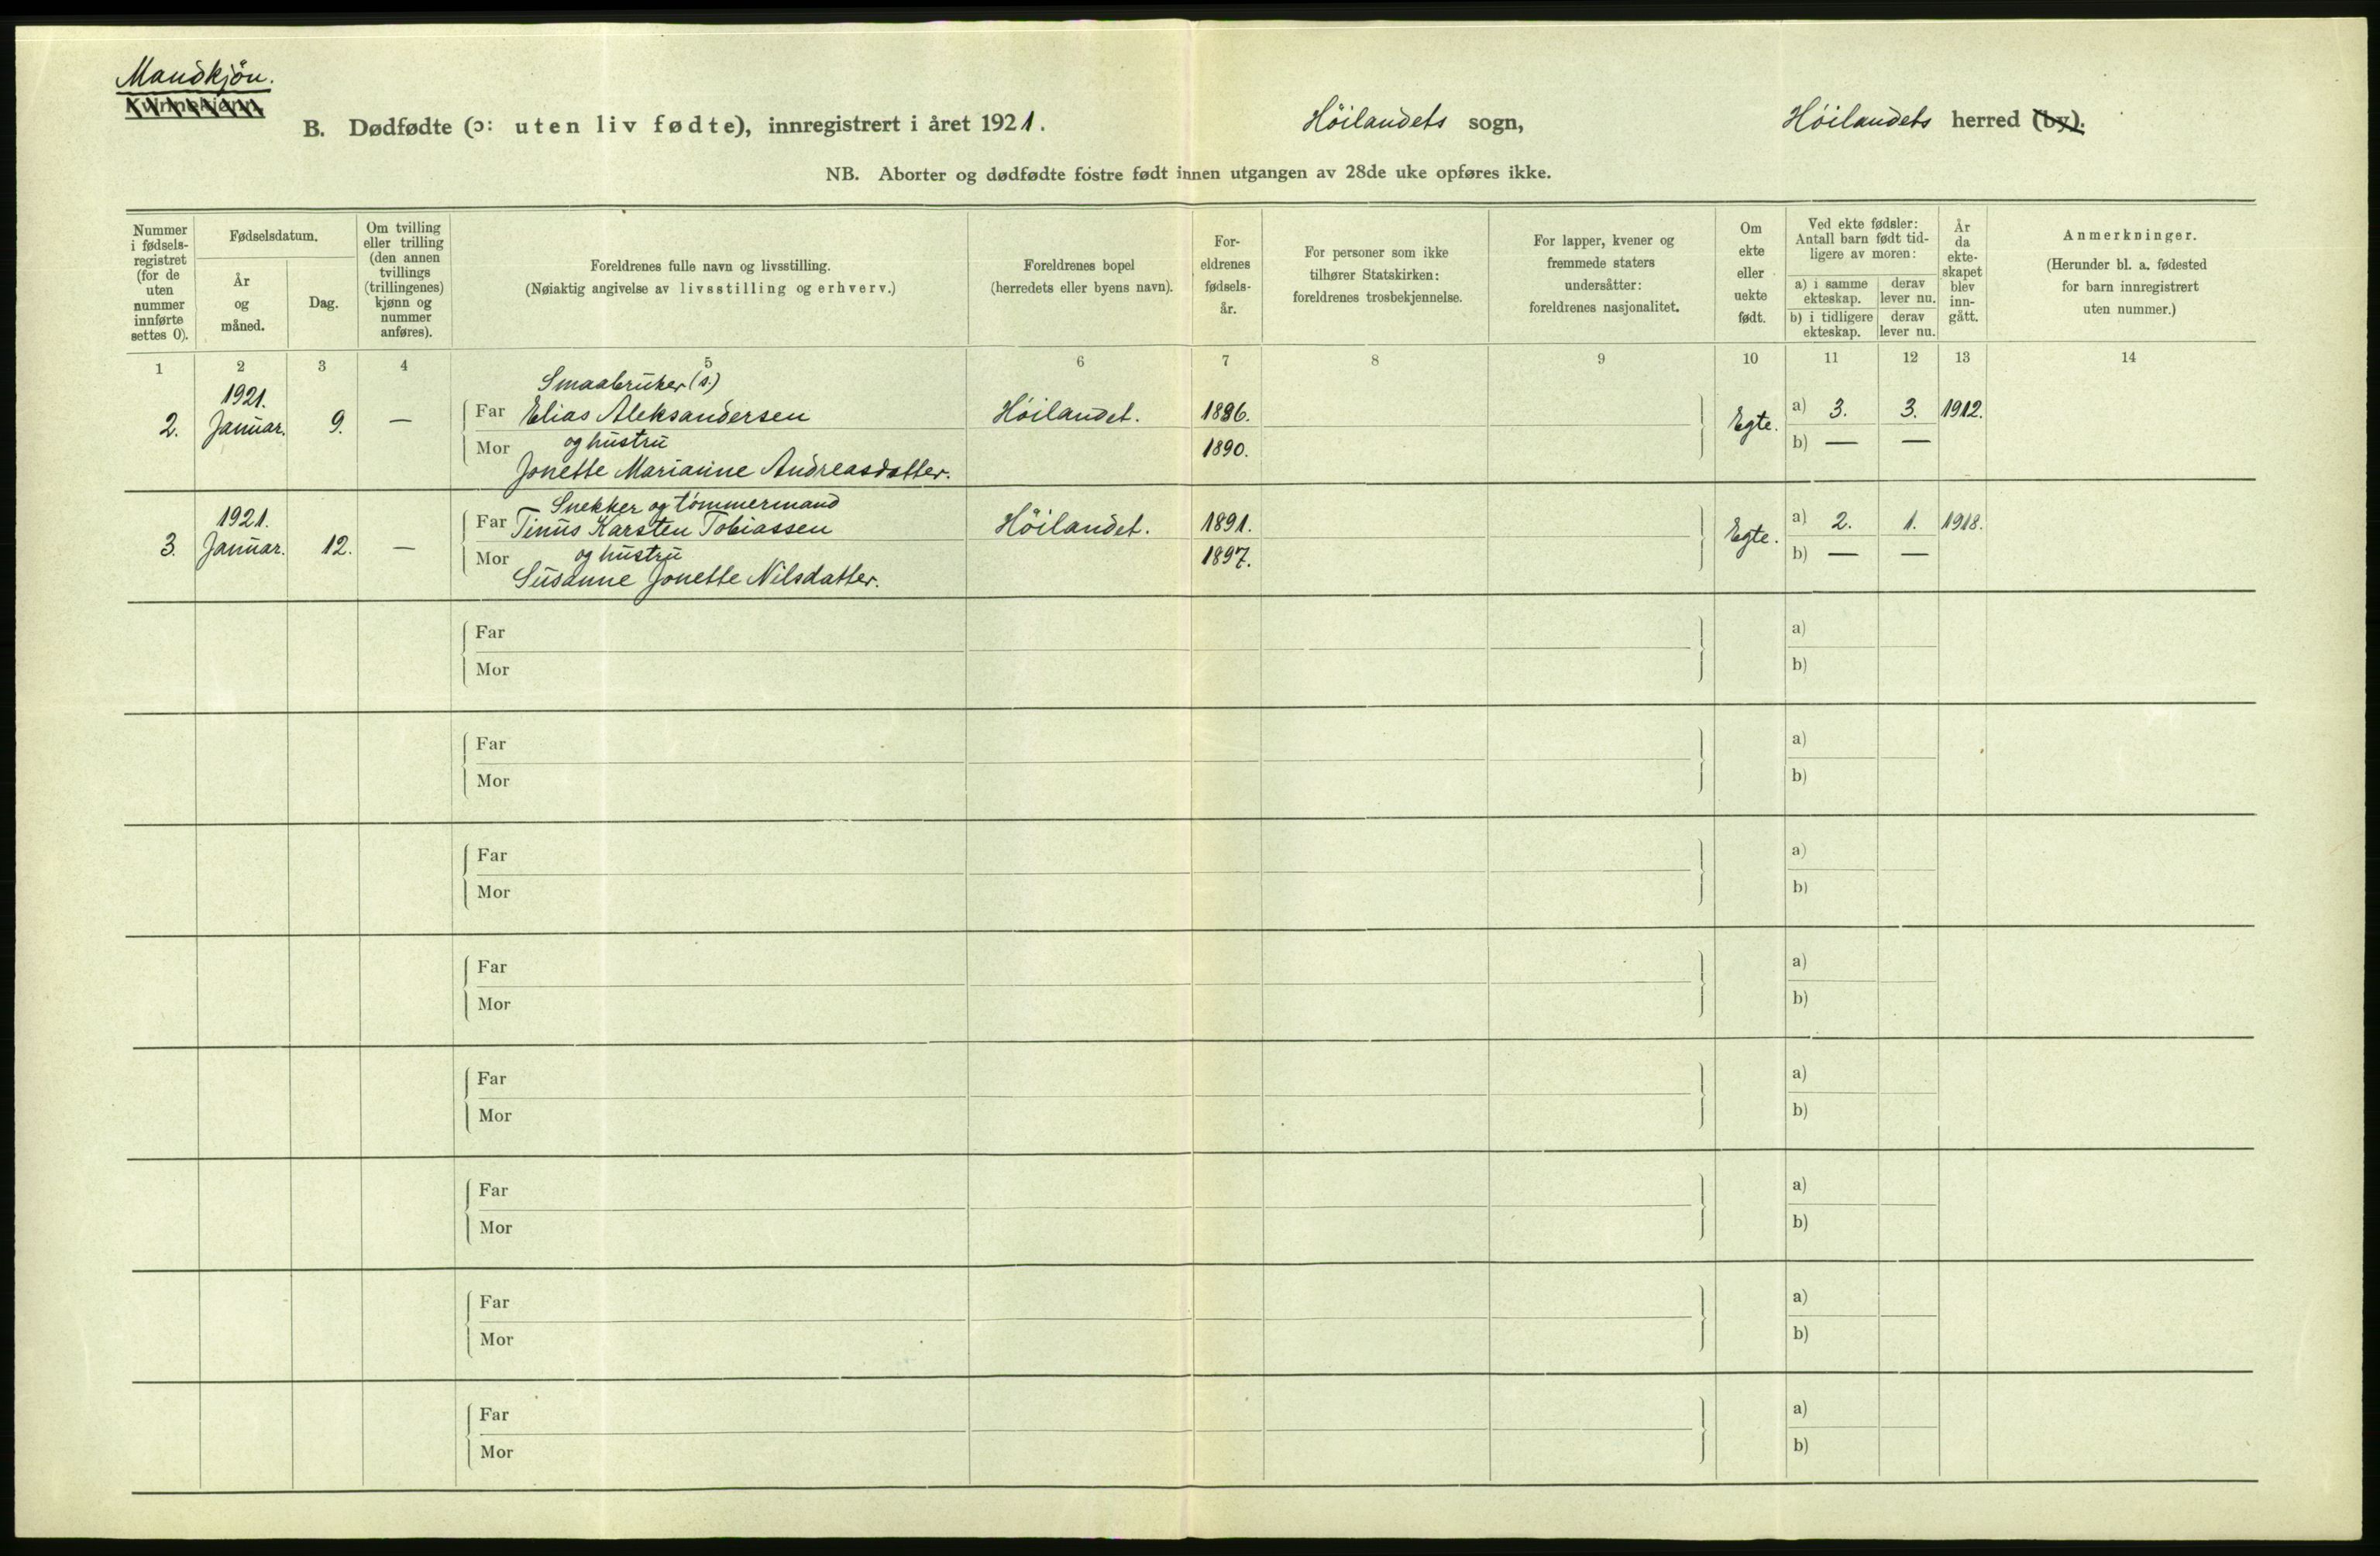 Mandkjön.
Kvinnekjønn.
B. Dødfødte (ɔ: uten liv fødte), innregistrert i året 1921. Höilandets sogn, Höilandets herred (by).
NB. Aborter og dødfødte fostre født innen utgangen av 28de uke opføres ikke.
Nummer i fødsels-registret (for de uten nummer innførte settes 0).
Fødselsdatum.
År og måned.
Dag.
Om tvilling eller trilling (den annen tvillings (trillingenes) kjønn og nummer anføres).
Foreldrenes fulle navn og livsstilling.
(Nøiaktig angivelse av livsstilling og erhverv.)
Foreldrenes bopel
(herredets eller byens navn).
For-eldrenes fødsels-år.
For personer som ikke tilhører Statskirken: foreldrenes trosbekjennelse.
For lapper, kvener og fremmede staters undersåtter: foreldrenes nasjonalitet.
Om ekte eller uekte født.
Ved ekte fødsler: Antall barn født tid-ligere av moren:
a) i samme ekteskap.
derav lever nu.
b) i tidligere ekteskap.
derav lever nu.
År da ekte-skapet blev inn-gått.
Anmerkninger.
(Herunder bl. a. fødested for barn innregistrert uten nummer.)
1 2 3 4 5 6 7 8 9 10 11 12 13 14
Smaabruker (s.)
2. 1921. Januar. 9. — Far Elias Aleksandersen Höilandet. 1886. Egte. a) 3. 3. 1912.
Mor og hustru 1890. b) — —
Jonette Marianne Andreasdatter.
Snekker og tömmermand
3. 1921. Januar. 12. — Far Tinus Karsten Tobiassen Höilandet. 1891. Egte. a) 2. 1. 1918.
Mor og hustru 1897. b) — —
Susanne Jonette Nilsdatter.
Far a)
Mor b)
Far a)
Mor b)
Far a)
Mor b)
Far a)
Mor b)
Far a)
Mor b)
Far a)
Mor b)
Far a)
Mor b)
Far a)
Mor b)